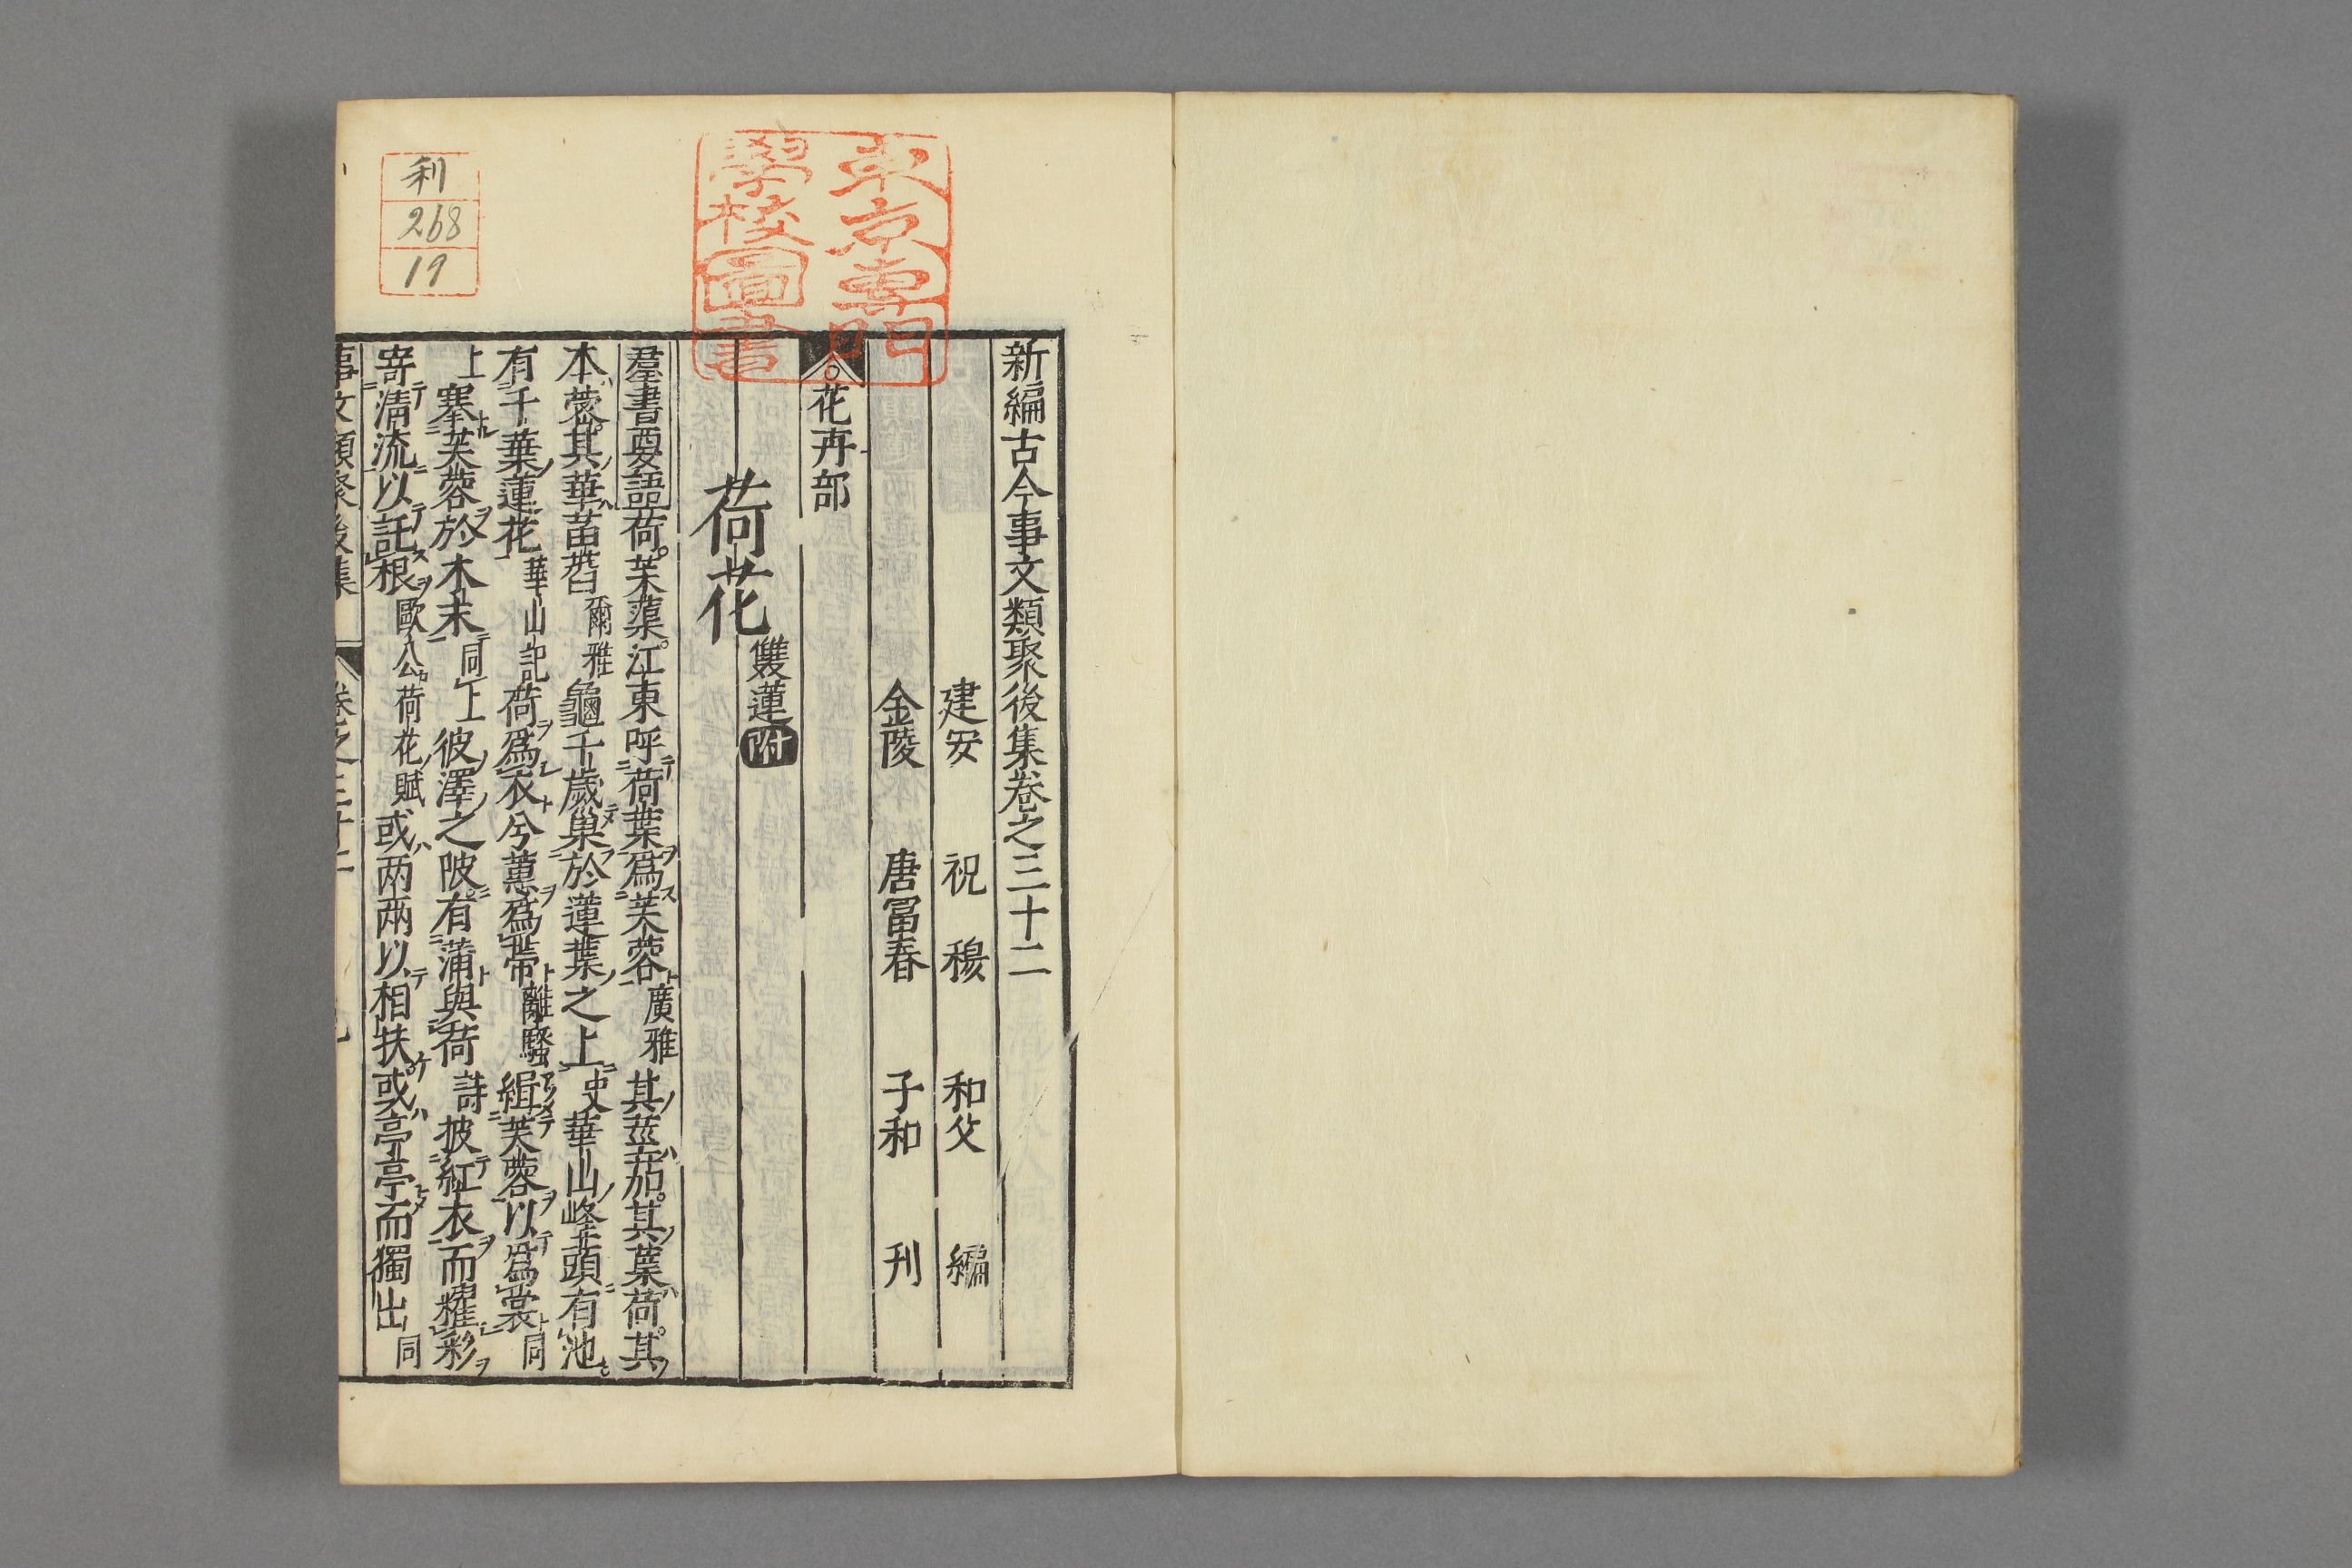 新編古今事文類聚後集卷之三十二
建安 祝穆 和父 編
金陵 唐冨春 子和 刊
○花卉部
荷花 雙蓮附
羣書要語荷芙蕖江東呼荷葉爲芙蓉廣雅其莖茄其葉荷其
本蔤其華菡萏爾雅龜千歲巢於蓮葉之上史華山峰頭有池
有千葉蓮花華山記荷爲衣兮蕙爲帶離騷緝芙蓉以爲裳同
上搴芙蓉於木末同上彼澤之陂有蒲與荷詩披紅衣而耀彩
寄清流以託根歐公荷花賦或兩兩以相扶或亭亭而獨出同
事文類聚後集 卷之三十二
東京專門
學校圖書
利
268
19